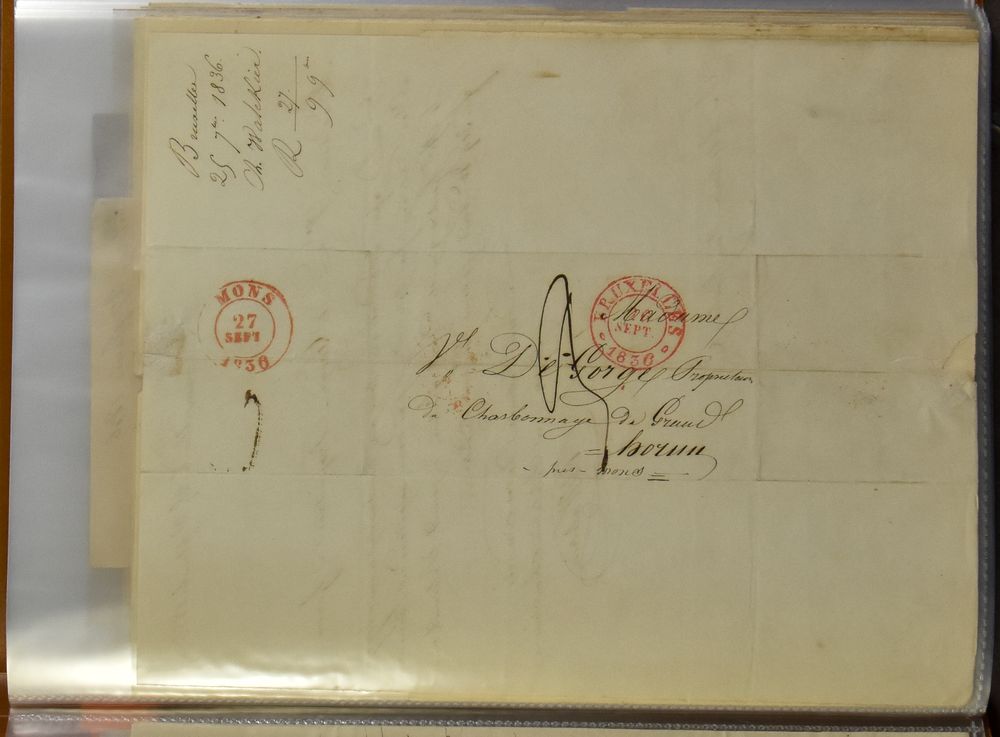 Bruxelles
25 7bre 1836
Ch.
R 27
9 9re
MONS
27
SEPT
1836
BRUXELLES
SEPT.
1836
Madame
Ve De Gorge Propriétaire
de Charbonnage de Grand
= hornu
- près - mons =